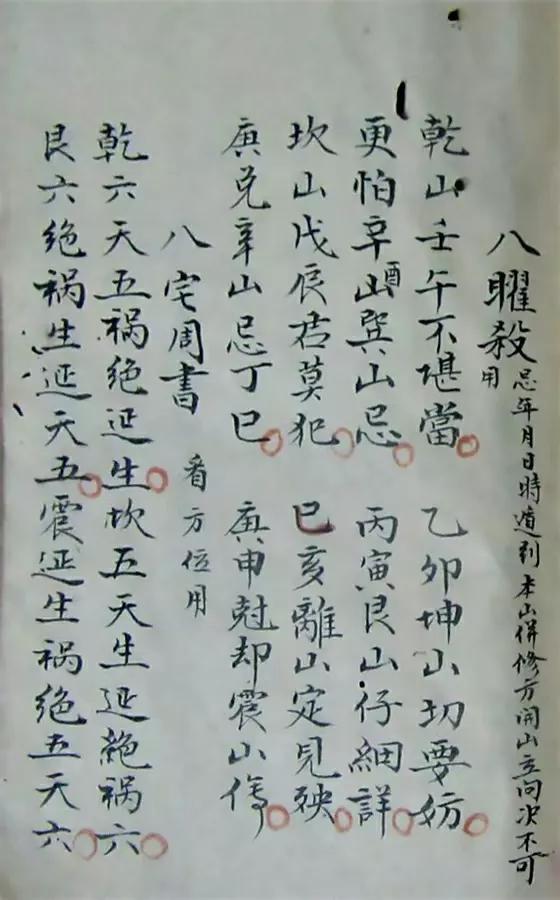 八曜殺忌年月日時遁到本山併修方開山立向次不可用
乾山壬午不堪當 乙卯坤山切要妨
更怕辛酉巽山忌 丙寅艮山仔細詳
坎山戊辰君莫犯 巳亥離山定見殃
庚兌辛山忌丁巳 庚申尅却震山傷
八宅周書 看方位用
乾六天五祸绝延生坎五天生延绝祸六
艮六绝祸生延天五震延生祸绝五天六